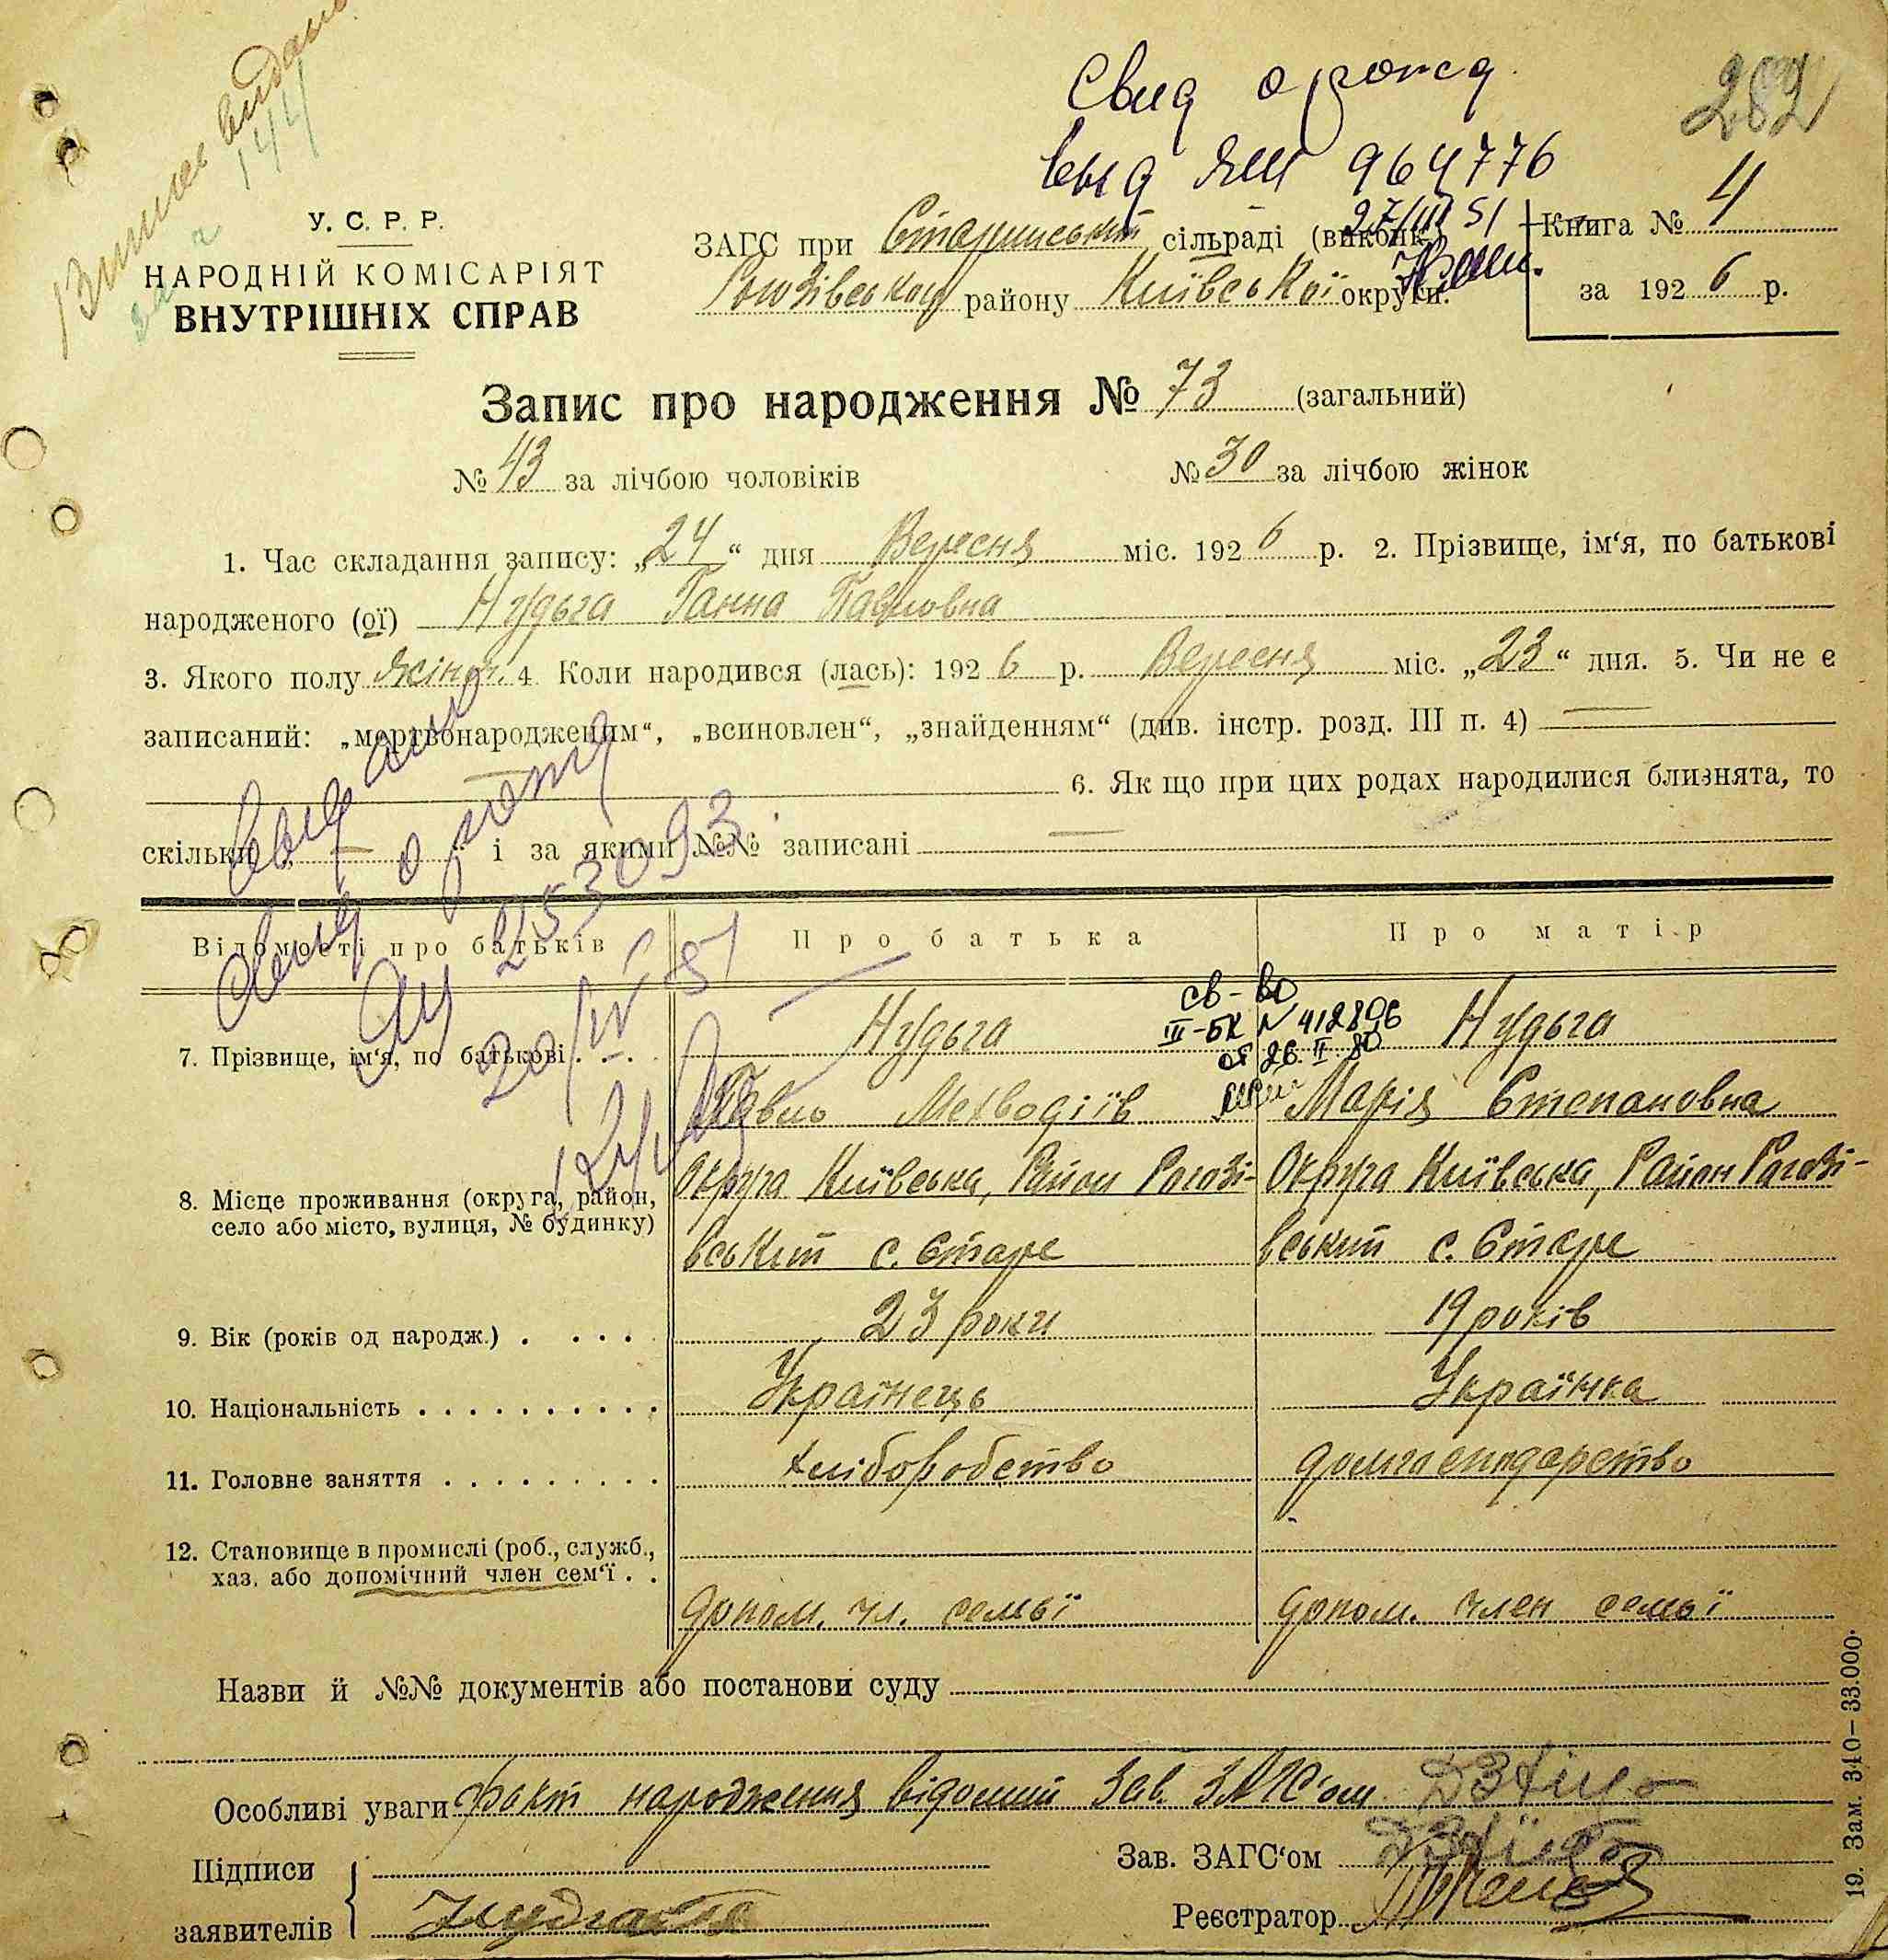 Свид о рожд
282
выд ЯШ 964776
27/III 51
Витяг видано
за №
144
У. С. Р. Р.
НАРОДНІЙ КОМІСАРІЯТ
ВНУТРІШНІХ СПРАВ
ЗАГС при Старинський сільраді (виконк.)
району Київської округи.
Книга № 4
за 192 6 р.
Запис про народження № 73 (загальний)
№ 43 за лічбою чоловіків № 30 за лічбою жінок
1. Час складання запису: „24“ дня Вересня міс. 192 6 р. 2. Прізвище, ім‘я, по батькові
народженого (ої) Нудьга Ганна Павловна
3. Якого полу жіноч. 4 Коли народився (лась): 192 6 р. Вересня міс. „23“ дня. 5. Чи не є
записаний: „мертвонародженим“, „всиновлен“, „знайденням“ (див. інстр. розд. III п. 4) —
6. Як що при цих родах народилися близнята, то
скільки — і за якими №№ записані —
о рожд
253093
20/IV 51
Відомості про батьків Про батька Про матір
св-во
III-БК N 412896
от 26. II 80
7. Прізвище, ім‘я, по батькові . . . Нудьга Нудьга
Павло Мехводіїв Марія Степановна
8. Місце проживання (округа, район, Округа Київська, Район Рогозі- Округа Київська, Район Рогозі-
село або місто, вулиця, № будинку) вський с. Старе вський с. Старе
9. Вік (років од народж.) . . . . 23 роки 19 років
10. Національність . . . . . . . . . . Українець Українка
11. Головне заняття . . . . . . . . . Хліборобство домгосподарство
12. Становище в промислі (роб., служб.,
хаз. або допомічний член сем‘ї . .
допом. чл. семьї допом. член семьї
Назви й №№ документів або постанови суду
Особливі уваги факт народження відомий Зав. ЗАГС'ом
Підписи
заявителів
Зав. ЗАГС‘ом
Реєстратор
19. Зам. 340–33.000.